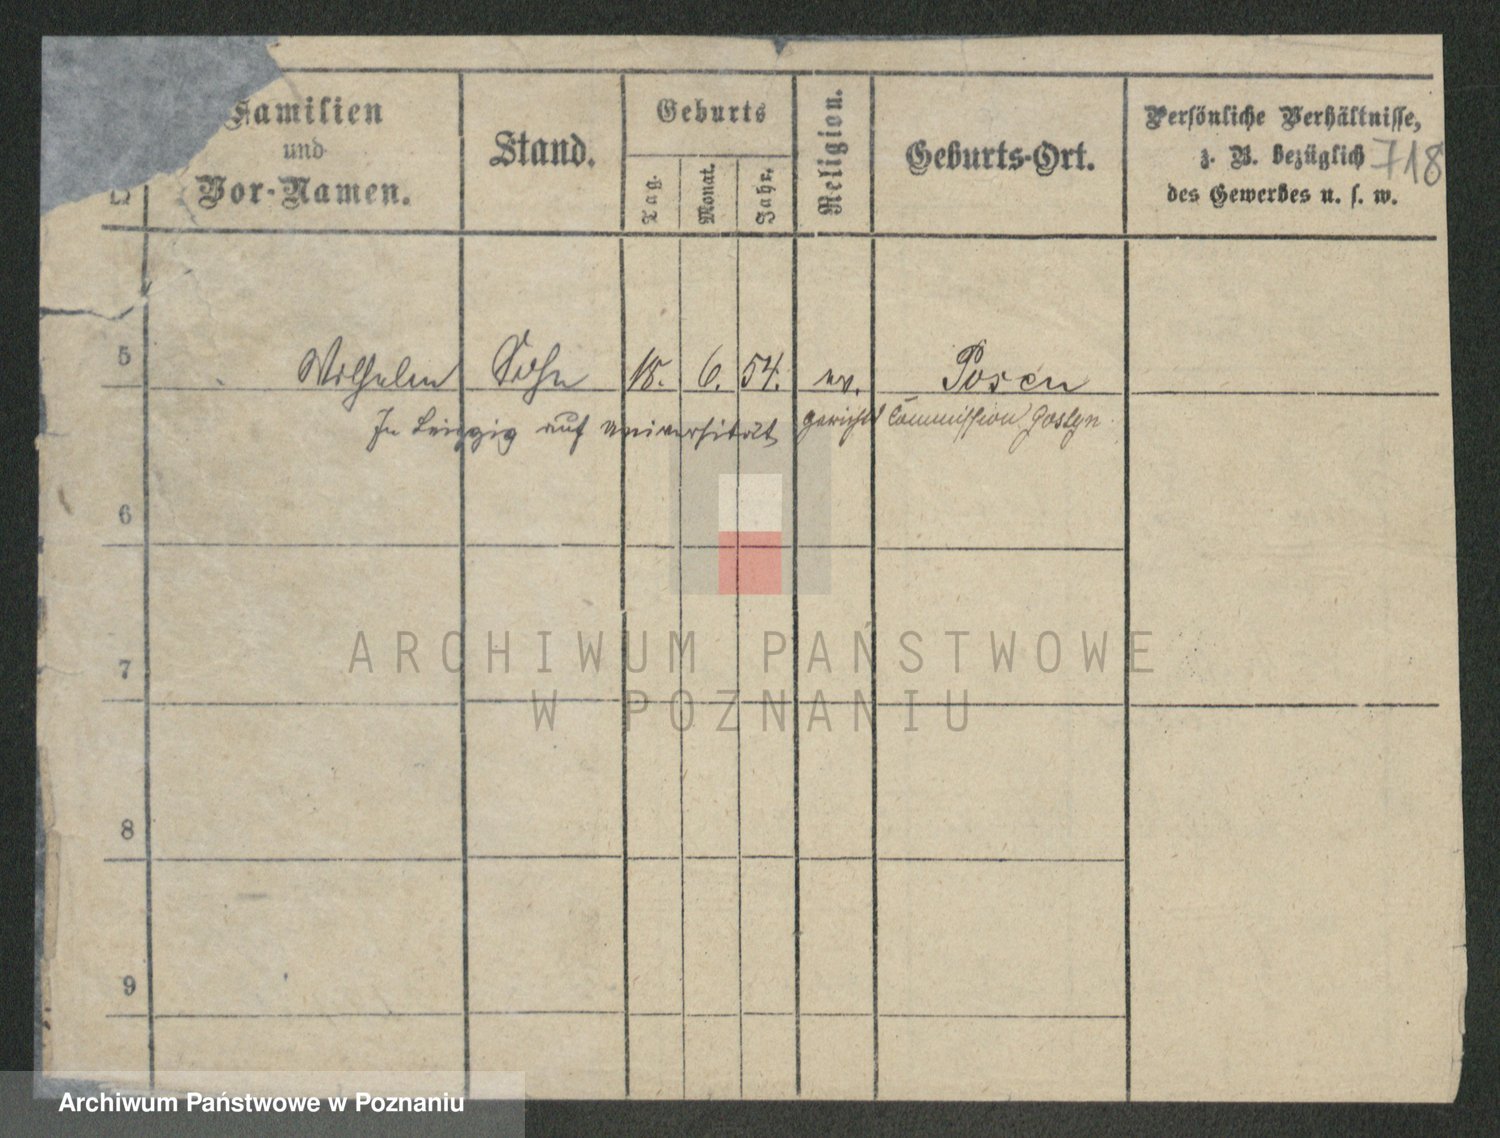 Familien
und
Vor-Namen.
Stand.
Geburts
Tag.
Monat.
Jahr.
Religion.
Geburts-Ort.
Persönliche Verhältnisse,
z. B. bezüglich
des Gewerbes u. s. w.
718
5 Wilhelm Sohn 18. 6. 54. ev. Posen
In Leipzig auf Universität gerichts Commission Gostyn
6
7
8
9
ARCHIWUM PAŃSTWOWE
W POZNANIU
Archiwum Państwowe w Poznaniu